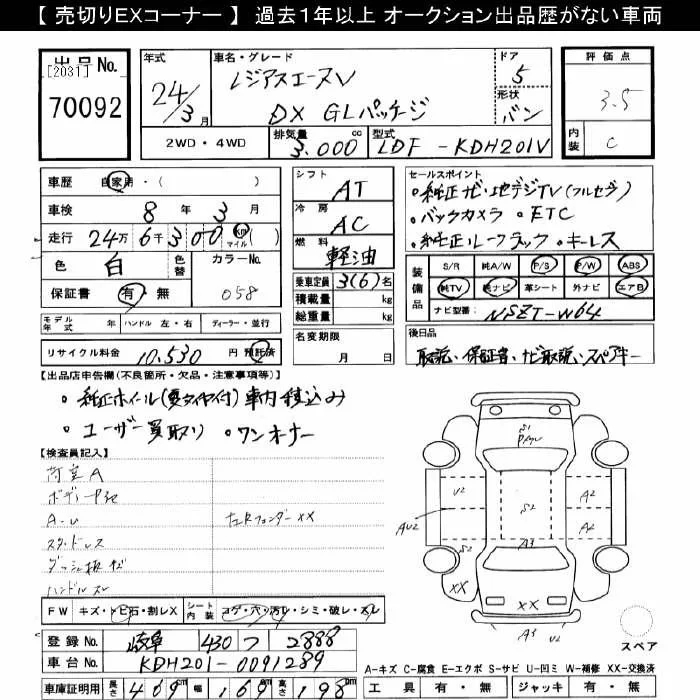 【 売切りEXコーナー 】 過去1年以上 オークション出品歴がない車両
出品No.
[2031]
70092
年式
24/3月
車名・グレード
レジアスエースV
DX GLパッケージ
ドア
5
形状
バン
2WD・4WD
排気量
3.000 cc
型式
LDF-KDH201V
評価点
3.5
内装
C
車歴 自家用・( )
車検 8年 3月
走行 24万 6千 300 km マイル ( )
色 白 色替 カラーNo.
058
保証書 有・無
モデル年式 年 ハンドル 左・右 ディーラー・並行
リサイクル料金 10.530 円 預託済
シフト AT
冷房 AC
燃料 軽油
乗車定員 3(6)名
積載量 kg
総重量 kg
名変期限
月 日
セールスポイント
・純正ナビ・地デジTV(フルセグ)
・バックカメラ ・ETC
・純正ルーフラック ・キーレス
装備品
S/R 純A/W P/S P/W ABS
純TV 純ナビ 革シート 外ナビ エアB
ナビ型番: NSZT-W64
後日品
取説、保証書、ナビ取説、スペアキー
【出品店申告欄(不良箇所・欠品・注意事項等)】
・純正ホイール(夏タイヤ付)車内積込み
・ユーザー買取り ・ワンオーナー
【検査員記入】
荷室A
A-U
左右フェンダーXX
ハンドルスレ
FW キズ・トビ石・割レX シート内装 コゲ・穴・汚レ・シミ・破レ・スレ
登録No. 岐阜 430 つ 2888
車台No. KDH201-0091289
車庫証明用 長さ 469cm 幅 169cm 高さ 198cm
S1
U2
A2
S2
AU2
A2
S2
A3
XX
XX
A3
スペア
A-キズ C-腐食 E-エクボ S-サビ U-凹ミ W-補修 XX-交換済
工具 有・無 ジャッキ 有・無